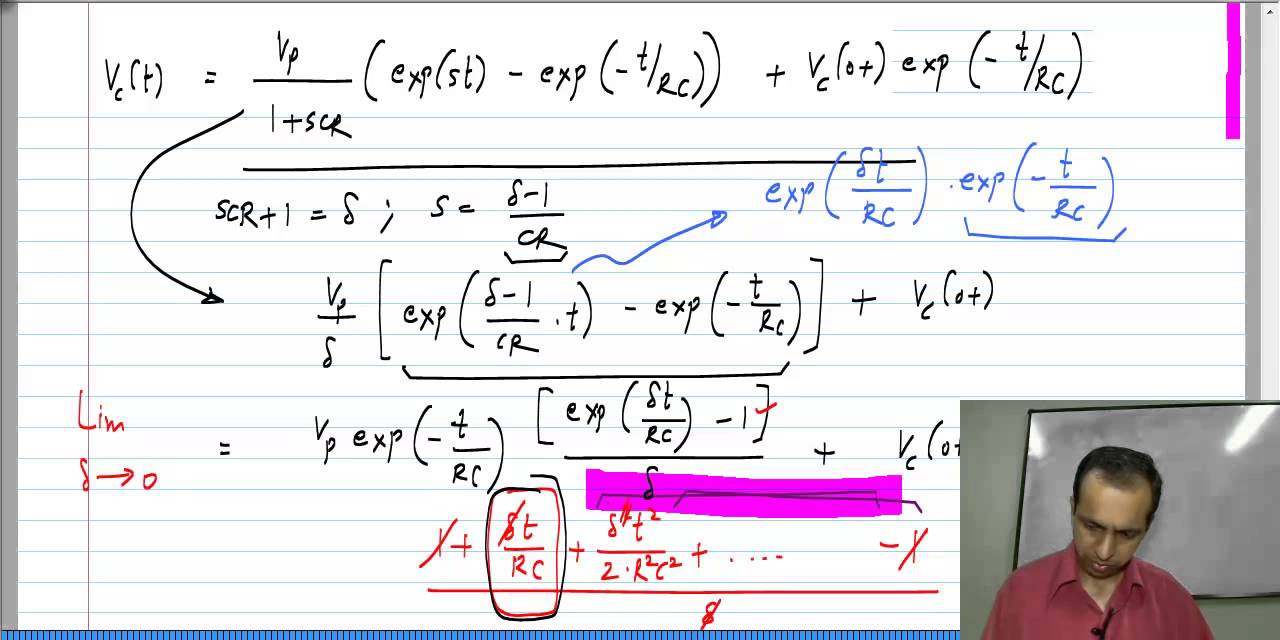 V_c(t) = V_p / (1+SCR) (exp(st) - exp(-t/RC)) + V_c(0+) exp(-t/RC)
exp(δt/RC) . exp(-t/RC)
SCR+1 = δ ; S = (δ-1)/CR
V_p/δ [exp((δ-1)/CR . t) - exp(-t/RC)] + V_c(0+)
Lim δ→0
= V_p exp(-t/RC) [exp(δt/RC) - 1]/δ + V_c(0+
1 + δt/RC + δ²t²/2·R²C² + .... - 1
δ